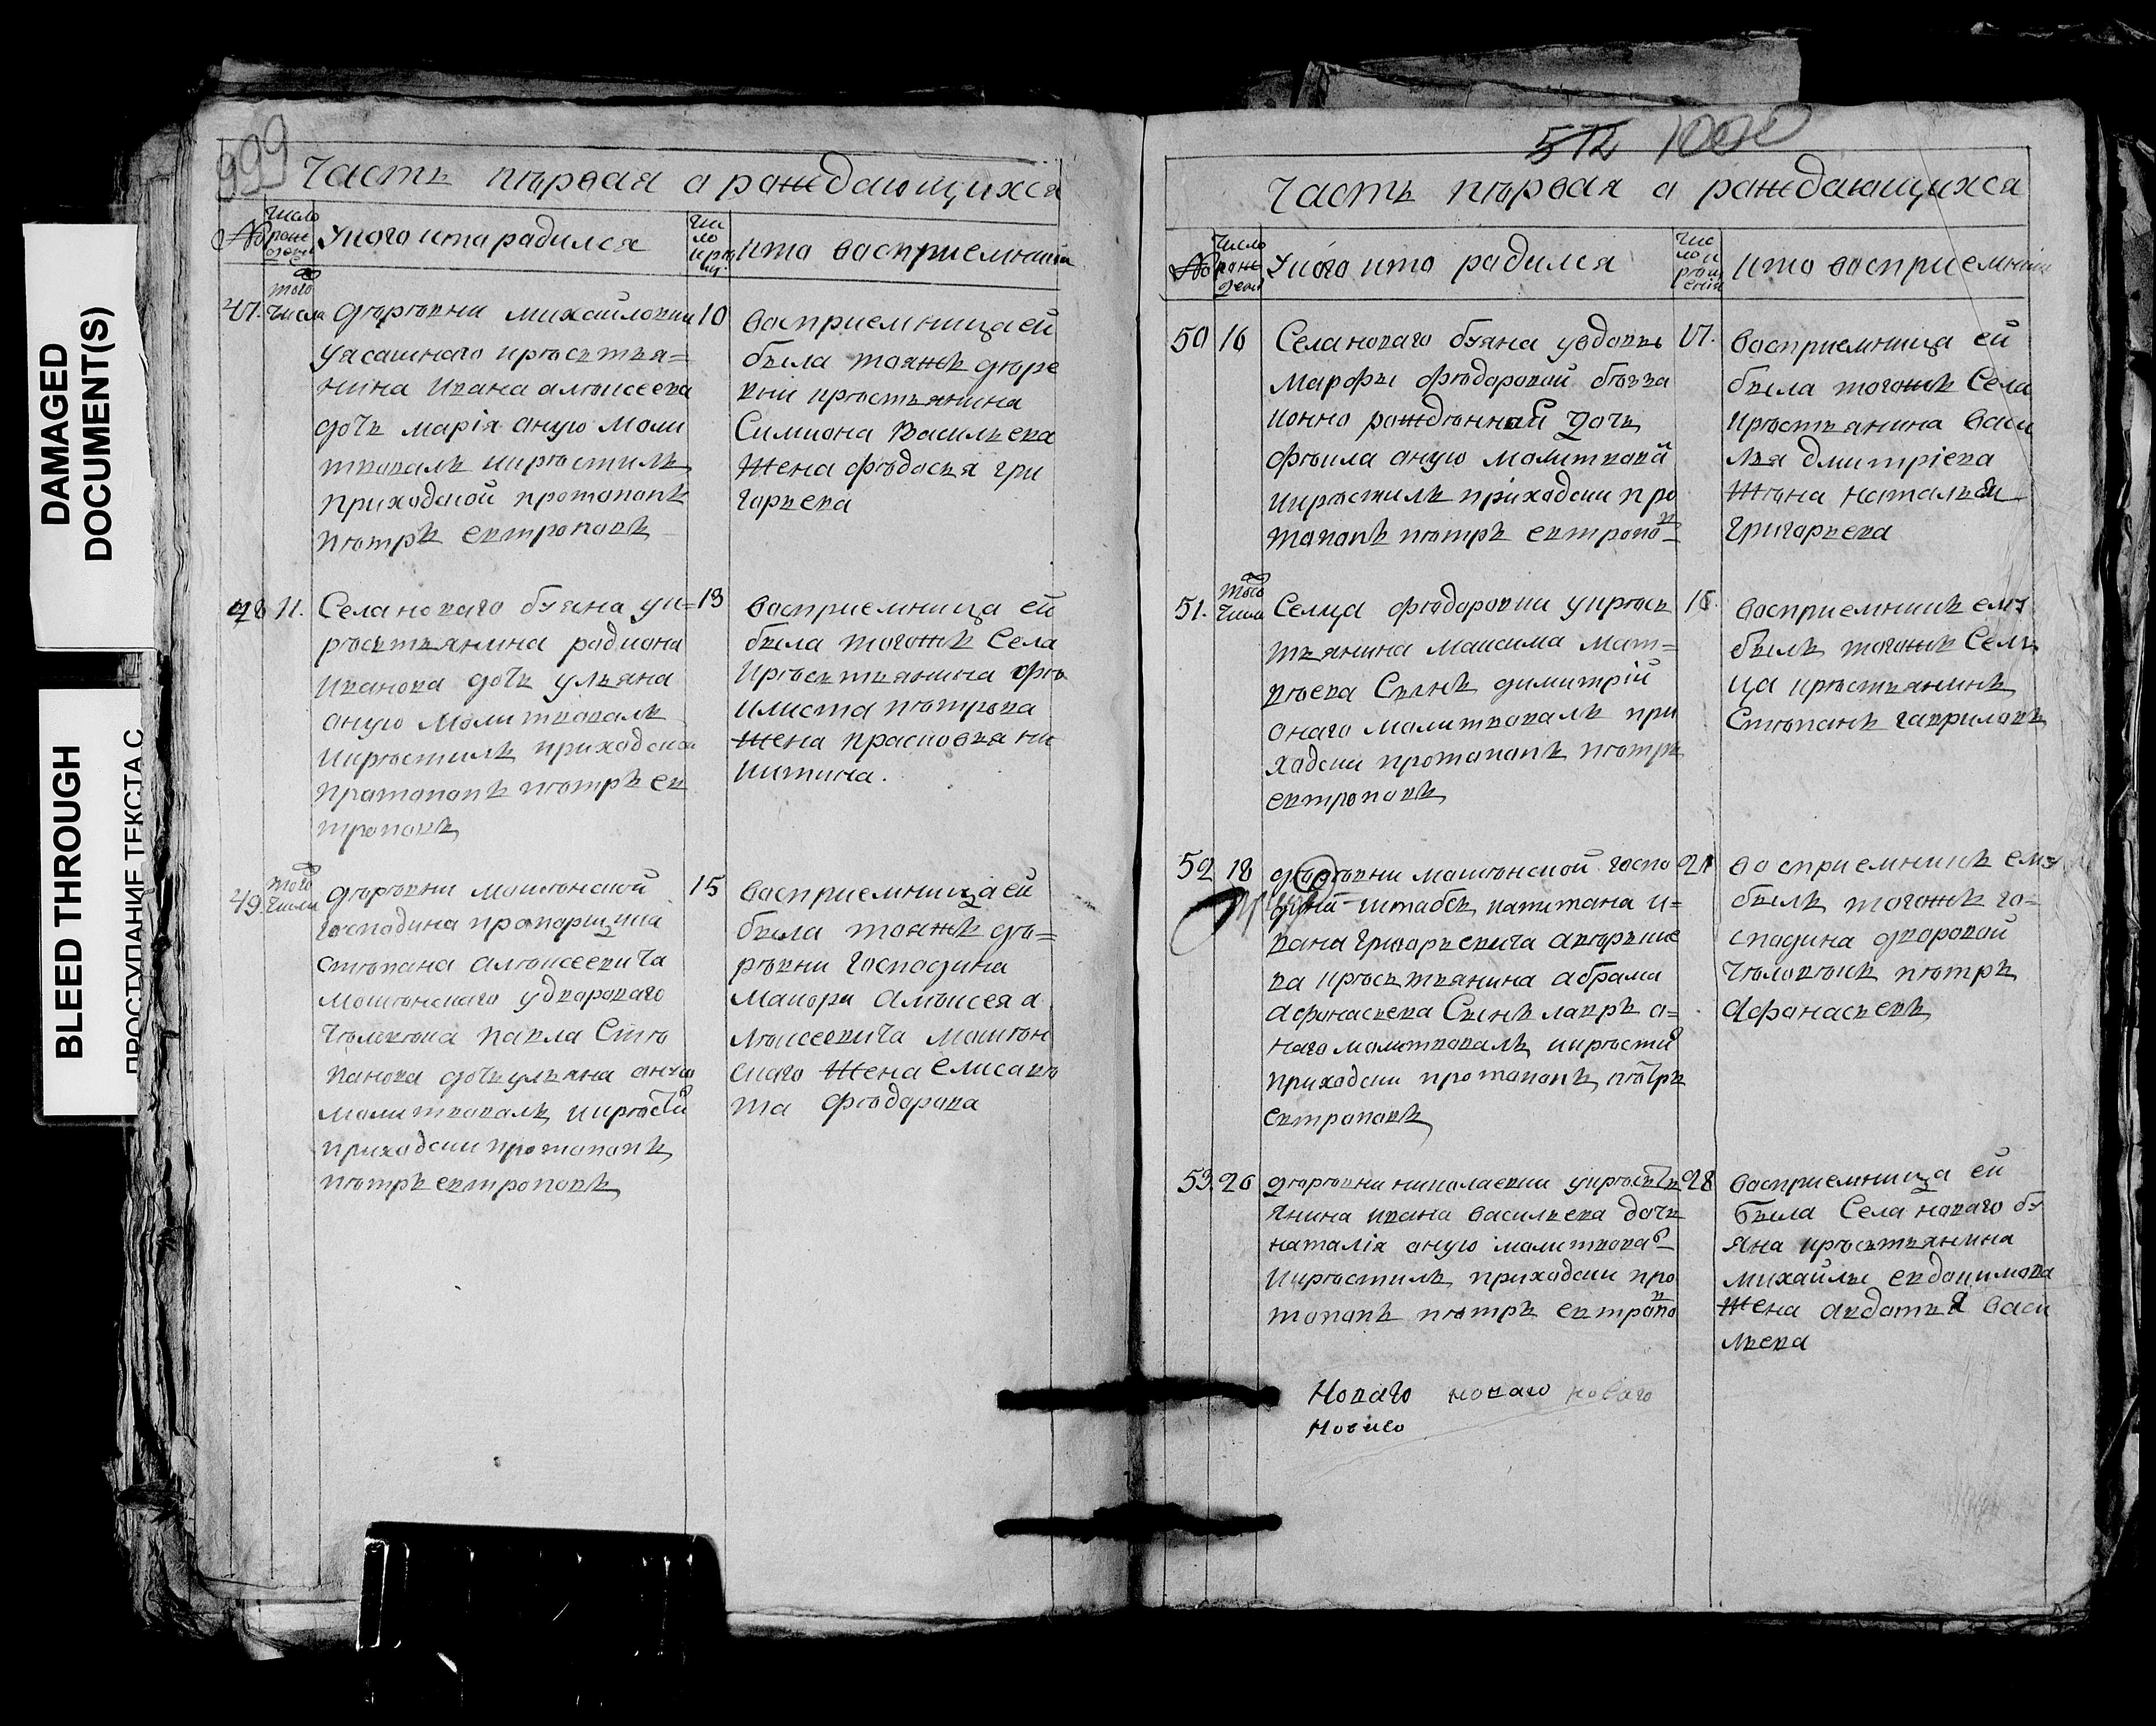 DAMAGED
DOCUMENT(S)
BLEED THROUGH
ПРОСТУПАНИЕ ТЕКСТА С
999
Часть первая о раждающихся
№
число рож дени
У кого кто радился
чи ло кре щ.
кто восприемники
47.
того числа
деревни михайловки
уясашнаго крѣстья=
нина ивана алексеева
дочь марія оную моли
твовалъ икрестилъ
приходской протопопъ
петръ евтроповъ
10
восприемница ей
была тояжъ дере
вни крестьянина
Симиона Васильева
Жена федосья гри
горьева
48
11.
Села новаго буяна ук=
рестьянина родиона
иванова дочь ульяна
оную молитвовалъ
икрестилъ приходской
протопопъ петръ ев
троповъ
13
восприемница ей
была тогожъ Села
крестьянина фе
клиста петрова
жена прасковья ни
китина.
49.
того числа
деревни мошенской
господина прапорщика
степана алексеевича
мошенскаго удвороваго
человека павла Сте
панова дочь ульяна оную
молитвовалъ икрестил
приходски протопопъ
петръ евтроповъ
15
восприемница ей
была тояжъ де=
ревни господина
маиора алексея а
лексеевича мошен
скаго Жена елисаве
та федорова
572 1000
Часть первая о раждающихся
№
число рож дени
У кого кто радился
чис ло к рещ ения
кто восприемники
50
16
Села новаго буяна увдовы
марфы федоровой беззa
конно рожденной дочь
фекла оную молитвовал
икрестилъ приходски про
топопъ петръ евтропов
17.
восприемница ей
была тогожъ Села
крестьянина васи
лья дмитріева
Жена наталья
григорьева
51.
того числа
Селца федоровки укресть
тьянина максима мат=
веева Сынъ димитрій
онаго молитвовалъ при
ходски протопопъ петръ
евтроповъ
18.
восприемникъ ему
былъ тогожъ Сель
ца крестьянинъ
Степанъ гавриловъ
52
18
деревни мошенской госпо
дина штабсъ капитана и=
вана григорьевича аверкие
ва крестьянина абрама
Афонасьева Сынъ лавръ о=
наго молитвовалъ икрестил
приходски протопопъ петръ
евтроповъ
21
восприемникъ ему
былъ тогожъ го=
сподина дворовой
человекъ петръ
Афонасьевъ
53.
26
деревни николаевки укресть
янина ивана васильева дочь
наталія оную молитвовал
икрестилъ приходски про
топопъ петръ евтропов
28
восприемница ей
была Села новаго бу
яна крестьянина
михайлы евдокимова
Жена авдотья васи
льева
Новаго новаго новаго
новаго